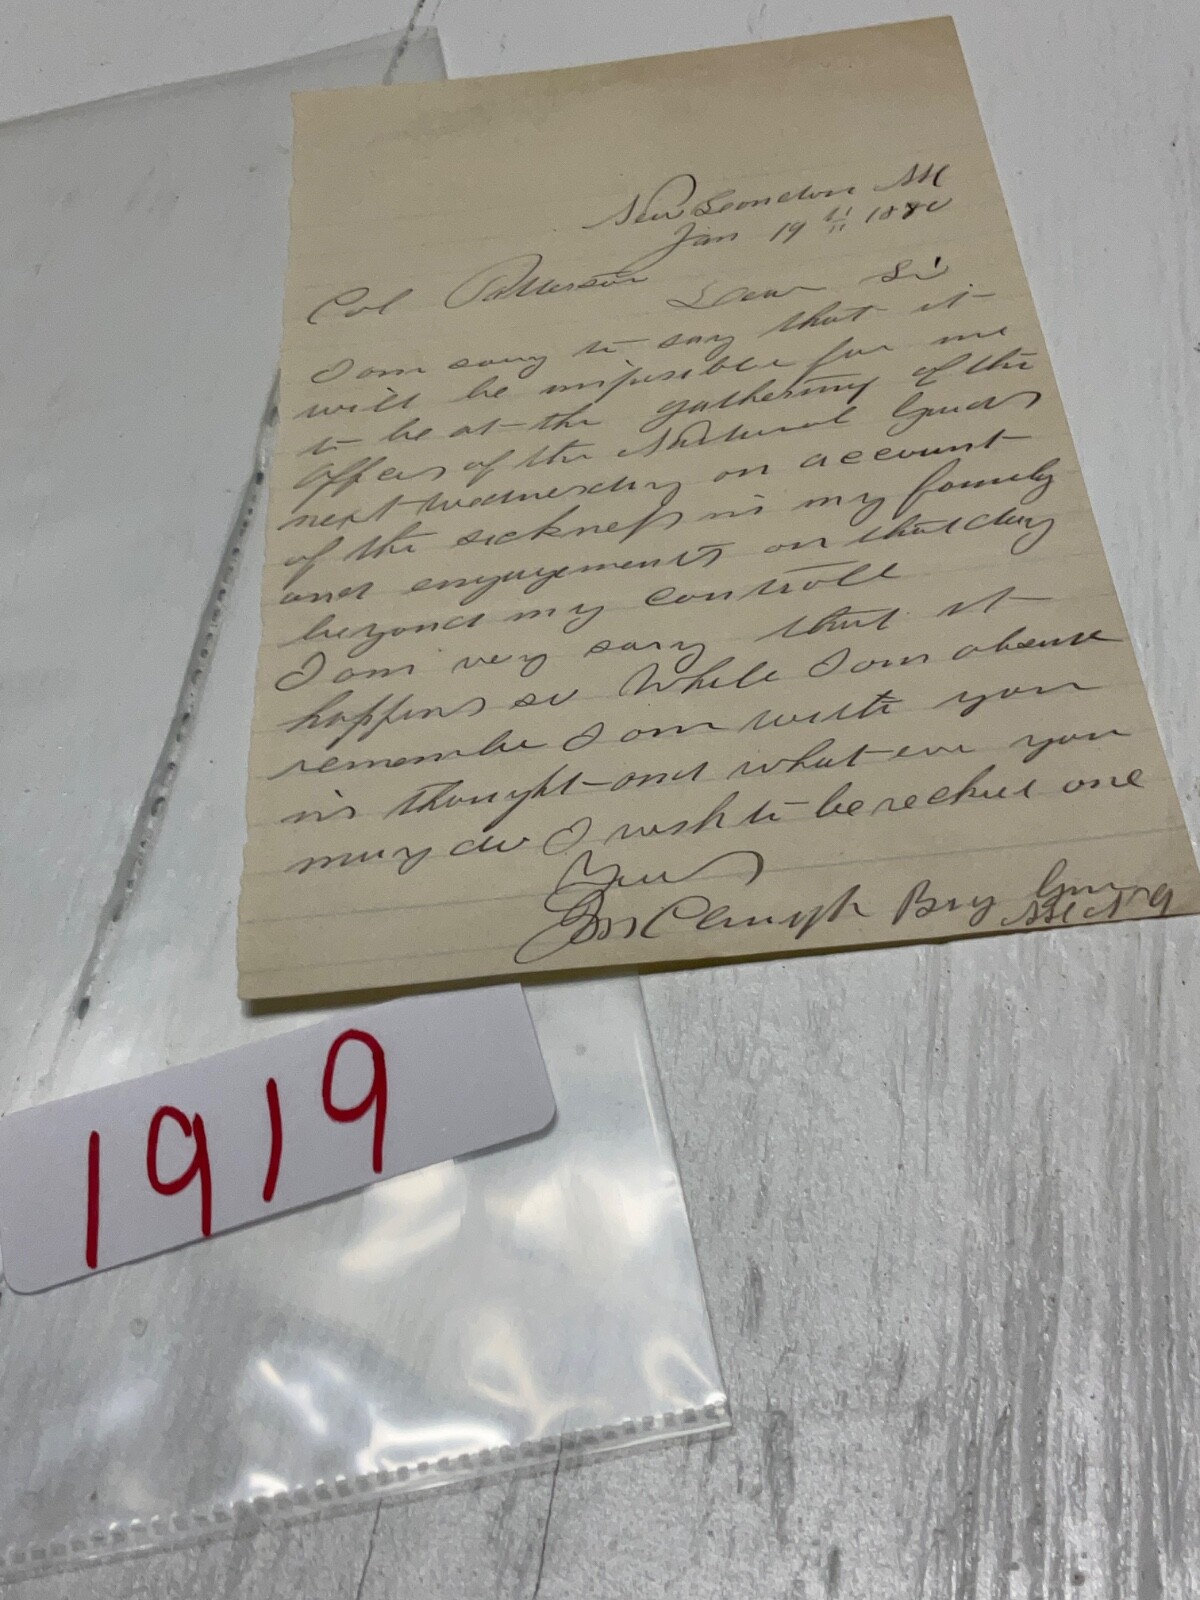 New London NH
Jan 19 th 1880
Col Patterson
Dear Sir
I am sorry to say that it
will be imposible for me
to be at the gathering of the
officers of the National Guards
next Wednesday on account
of the sickness in my family
and engagements on that day
beyond my controll
I am very sorry that it
happens so While I am absent
remember I am with you
in thought and what ever you
may do I wish to be recked one
Yours
Clough Brig Gen
NH N G
1919